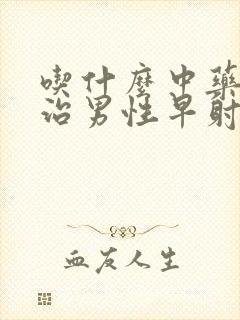 喫什麼中藥
治男性早射
血友人生